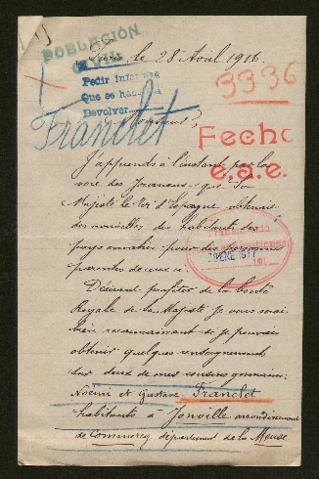 POBLACIÓN
CIVIL
le 28 Avril 1916.
Pedir informes
Que se haga
Devolver
3336
Franclet
Monsieur,
Fecho
e.a.e.
J'apprends à l'instant par la
voie des Journaux que Sa
Majesté le Roi d'Espagne obtenait
des nouvelles des habitants des
pays envahis pour des personnes
parentes de ceux-ci.
Désirant profiter de la bonté
Royale de Sa Majesté je vous serai
bien reconnaissant si je pouvais
obtenir quelques renseignements
sur deux de mes cousins germains:
Noémie et Gustave Franclet
habitants à Jonville arrondissement
de Commercy département de la Meuse